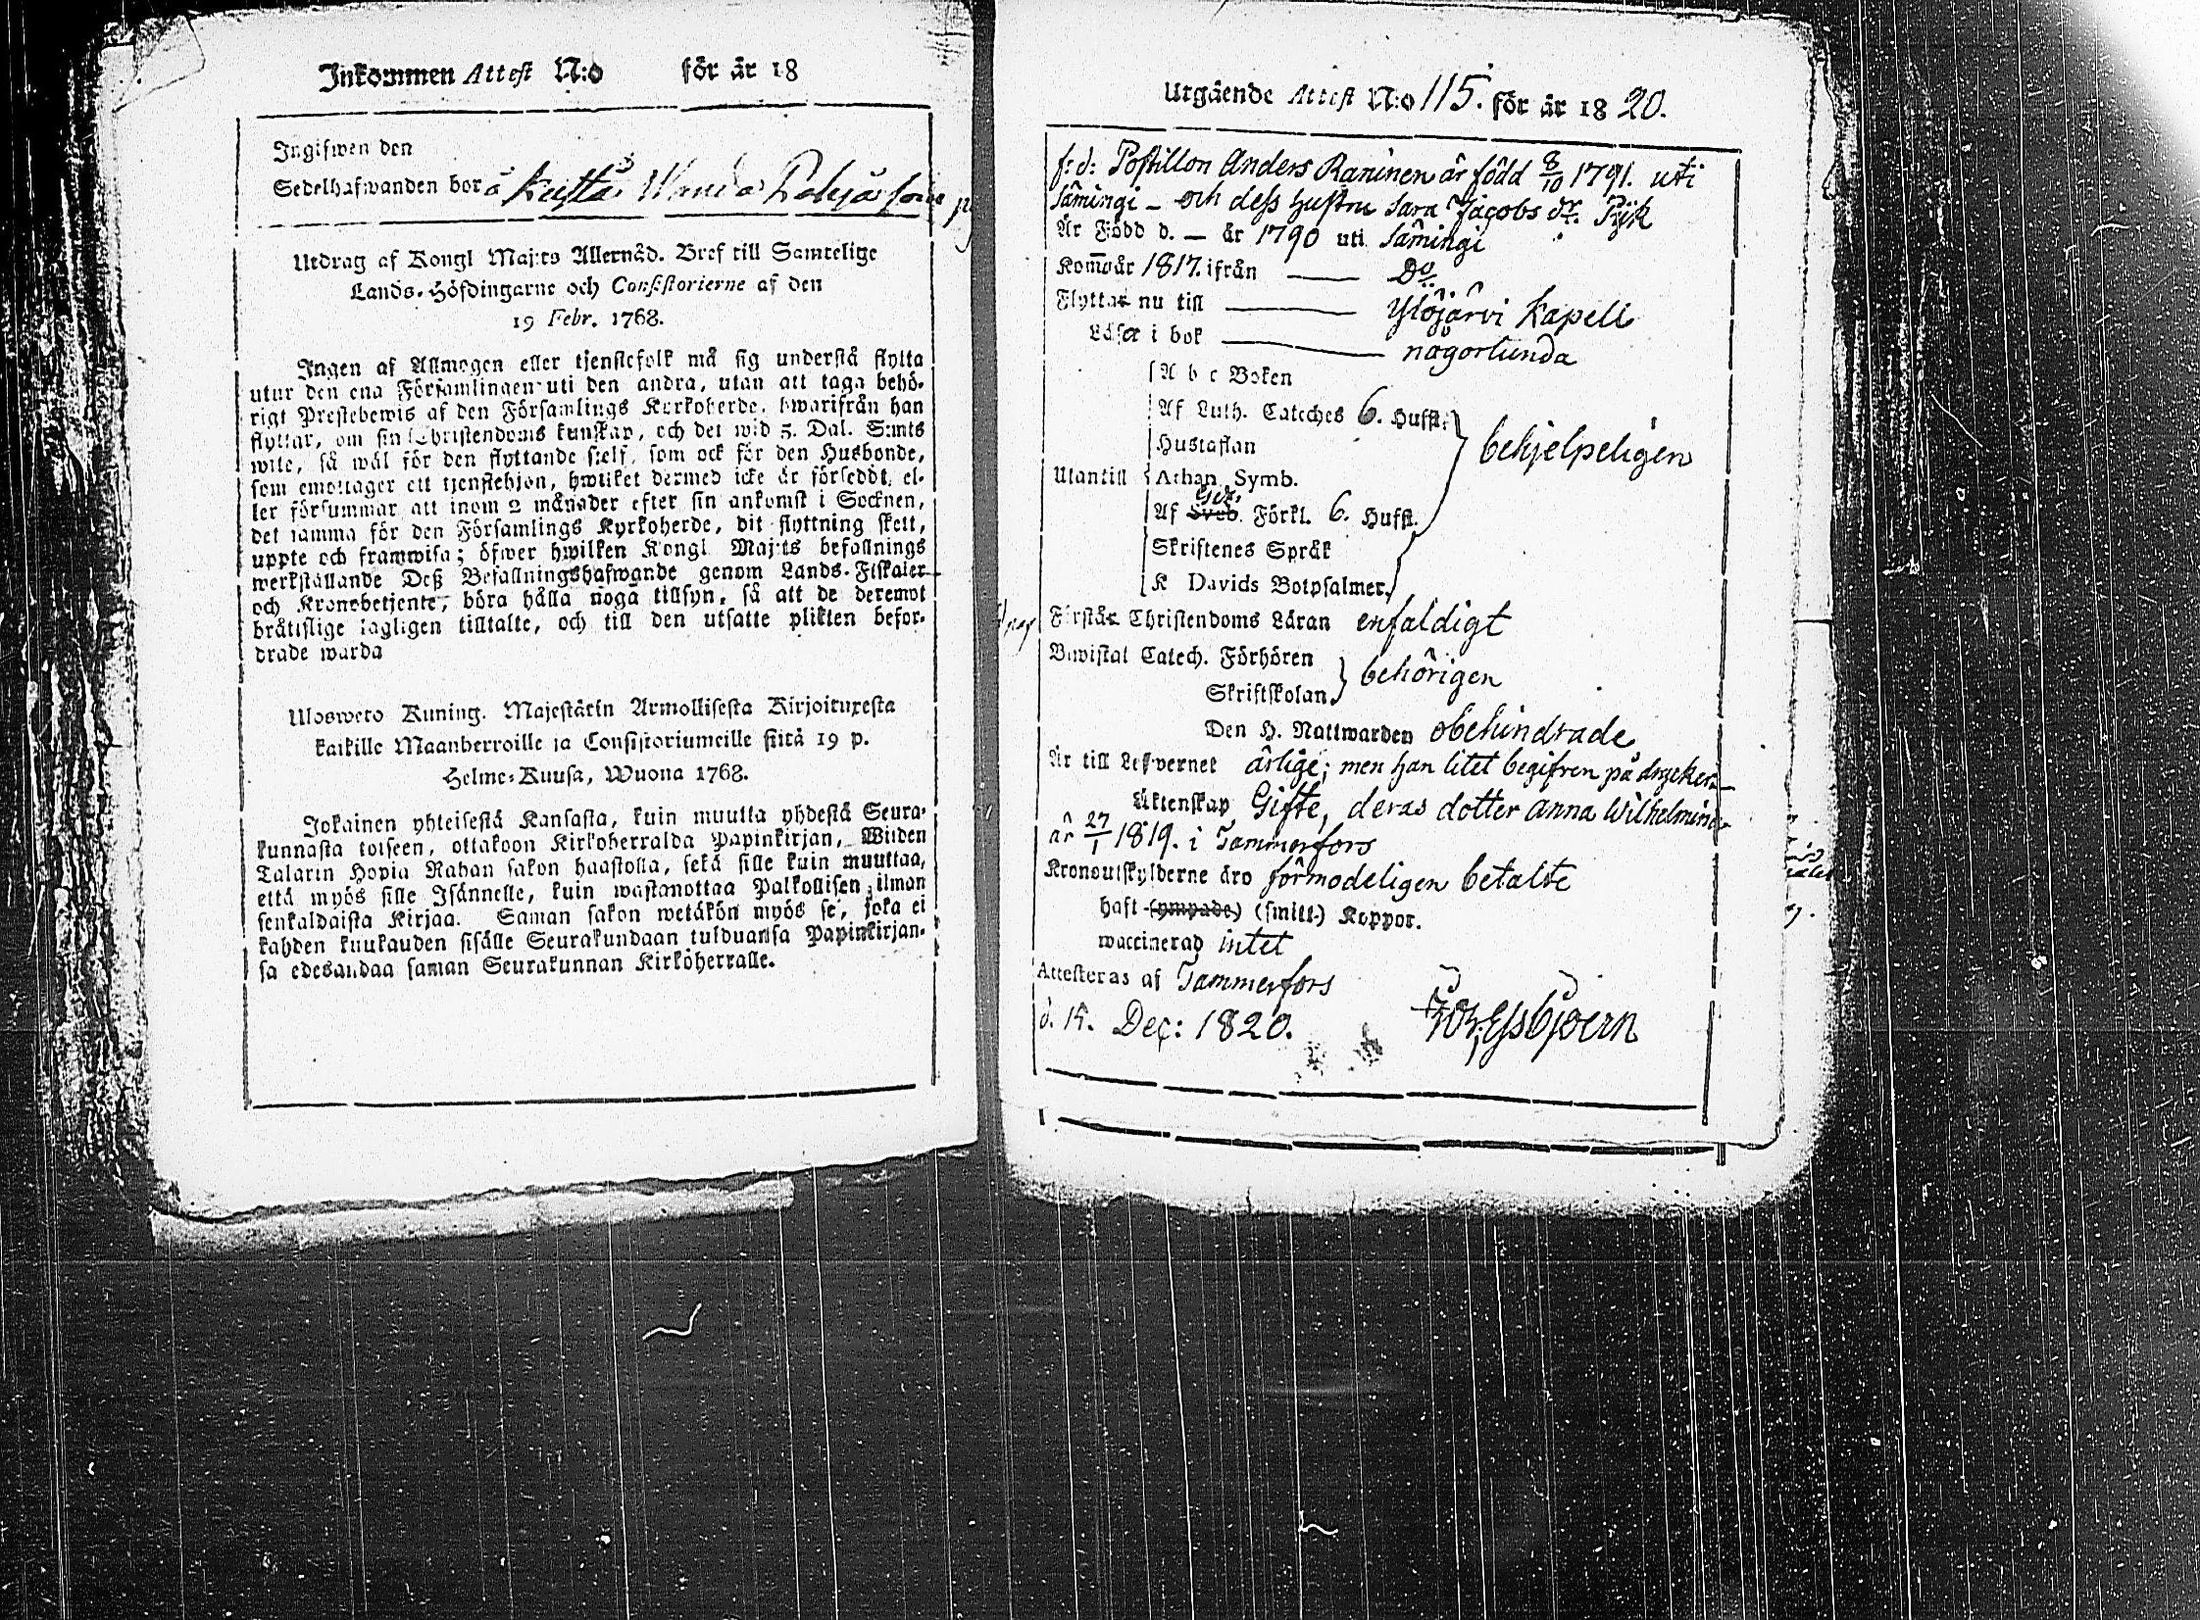 Inkommen Attest N:o för år 18
Ingifwen den
Sedelhafwanden bor å
Utdrag af Kongl Maj:ts Allernåd. Bref till Samtelige
Lands-Höfdingarne och Consistorierne af den
19 Febr. 1768.
Ingen af Allmogen eller tjenstefolk må sig understå flytta
utur den ena Församlingen uti den andra, utan att taga behö-
rigt Prestebewis af den Församlings Kyrkoherde, hwarifrån han
flyttar, om sin Christendoms kunskap, och det wid 5. Dal. S:mts
wite, så wäl för den flyttande sjelf, som ock för den Husbonde,
som emottager ett tjenstehjon, hwilket dermed icke är försedd, el-
ler försummar att inom 2 månader efter sin ankomst i Socknen,
det samma för den Församlings Kyrkoherde, dit flyttning skett,
uppte och framwisa; öfwer hwilken Kongl Maj:ts befallnings
werkställande Deß Befallningshafwande genom Lands-Fiskaler
och Kronobetjente, böra hålla noga tillsyn, så att de deremot
bråtislige lagligen tilltalte, och till den utsatte plikten befor-
drade warda
Ulosweto Kuning. Majestätin Armollisesta Kirjoituxesta
kaikille Maanherroille ja Consistoriumeille siitä 19 p.
Helme-Kuusa, Wuona 1768.
Jokainen yhteisestä Kansasta, kuin muutta yhdestä Seura-
kunnasta toiseen, ottakoon Kirkoherralda Papinkirjan, Wiiden
Talarin Hopia Rahan sakon haastolla, sekä sille kuin muuttaa,
että myös sille Isännelle, kuin wastanottaa Palkollisen ilman
senkaldaista Kirjaa. Saman sakon wetäkön myös se, joka ei
kahden kuukauden sisälle Seurakundaan tulduansa Papinkirjan-
sa edesandaa saman Seurakunnan Kirköherralle.
Utgående Attest N:o 115. för år 18 20.
f: d: Postillon Anders Raninen är född 8/10 1791. uti
Sämingi - och dess hustru Sara Jacobs dr. Pyk
År Född d. - år 1790 uti Sämingi
Kom̄ år 1817. ifrån Do
Flyttar nu till Ylöjärvi Kapell
Läser i bok någorlunda
A b c Boken
Af Luth. Cateches 6. Hufst.
Hustaflan
behjelpeligen
Utantill Athan. Symb.
Af Sveb. Förkl. 6. Hufst.
Skriftenes Språk
K Davids Botpsalmer.
Förstår Christendoms Läran enfaldigt
Biwistat Catech. Förhören
Skriftskolan behörigen
Den H. Nattwarden obehindrade
Är till Lefwernet ärlige; men han litet begifven på dryckes-
Äktenskap Gifte, deras dotter Anna Wilhelmina
är 27/1 1819. i Tammerfors
Kronoutskylderne äro förmodeligen betalte
haft (ympade) (smitt.) Koppor.
waccinerad intet
Attesteras af Tammerfors
d. 15. Dec: 1820.